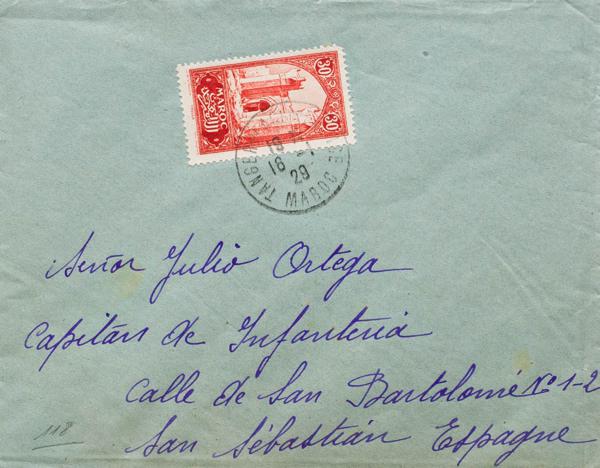 30 30
MAROC
18
16 - 1
29
MAROC
Señor Julio Ortega
Capitán de Infanteria
Calle de San Bartolomé Nº 1-2
118
San Sébastián Espagne